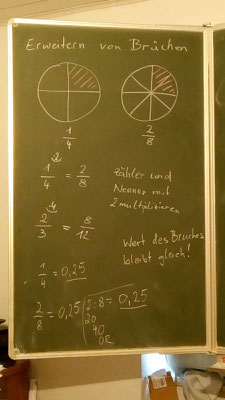 Erweitern von Brüchen
1/4
2/8
2
1/4 = 2/8
Zähler und
Nenner mit
2 multiplizieren
4
2/3 = 8/12
Wert des Bruches
bleibt gleich!
1/4 = 0,25
2/8 = 0,25
2 : 8 = 0,25
20
40
0R